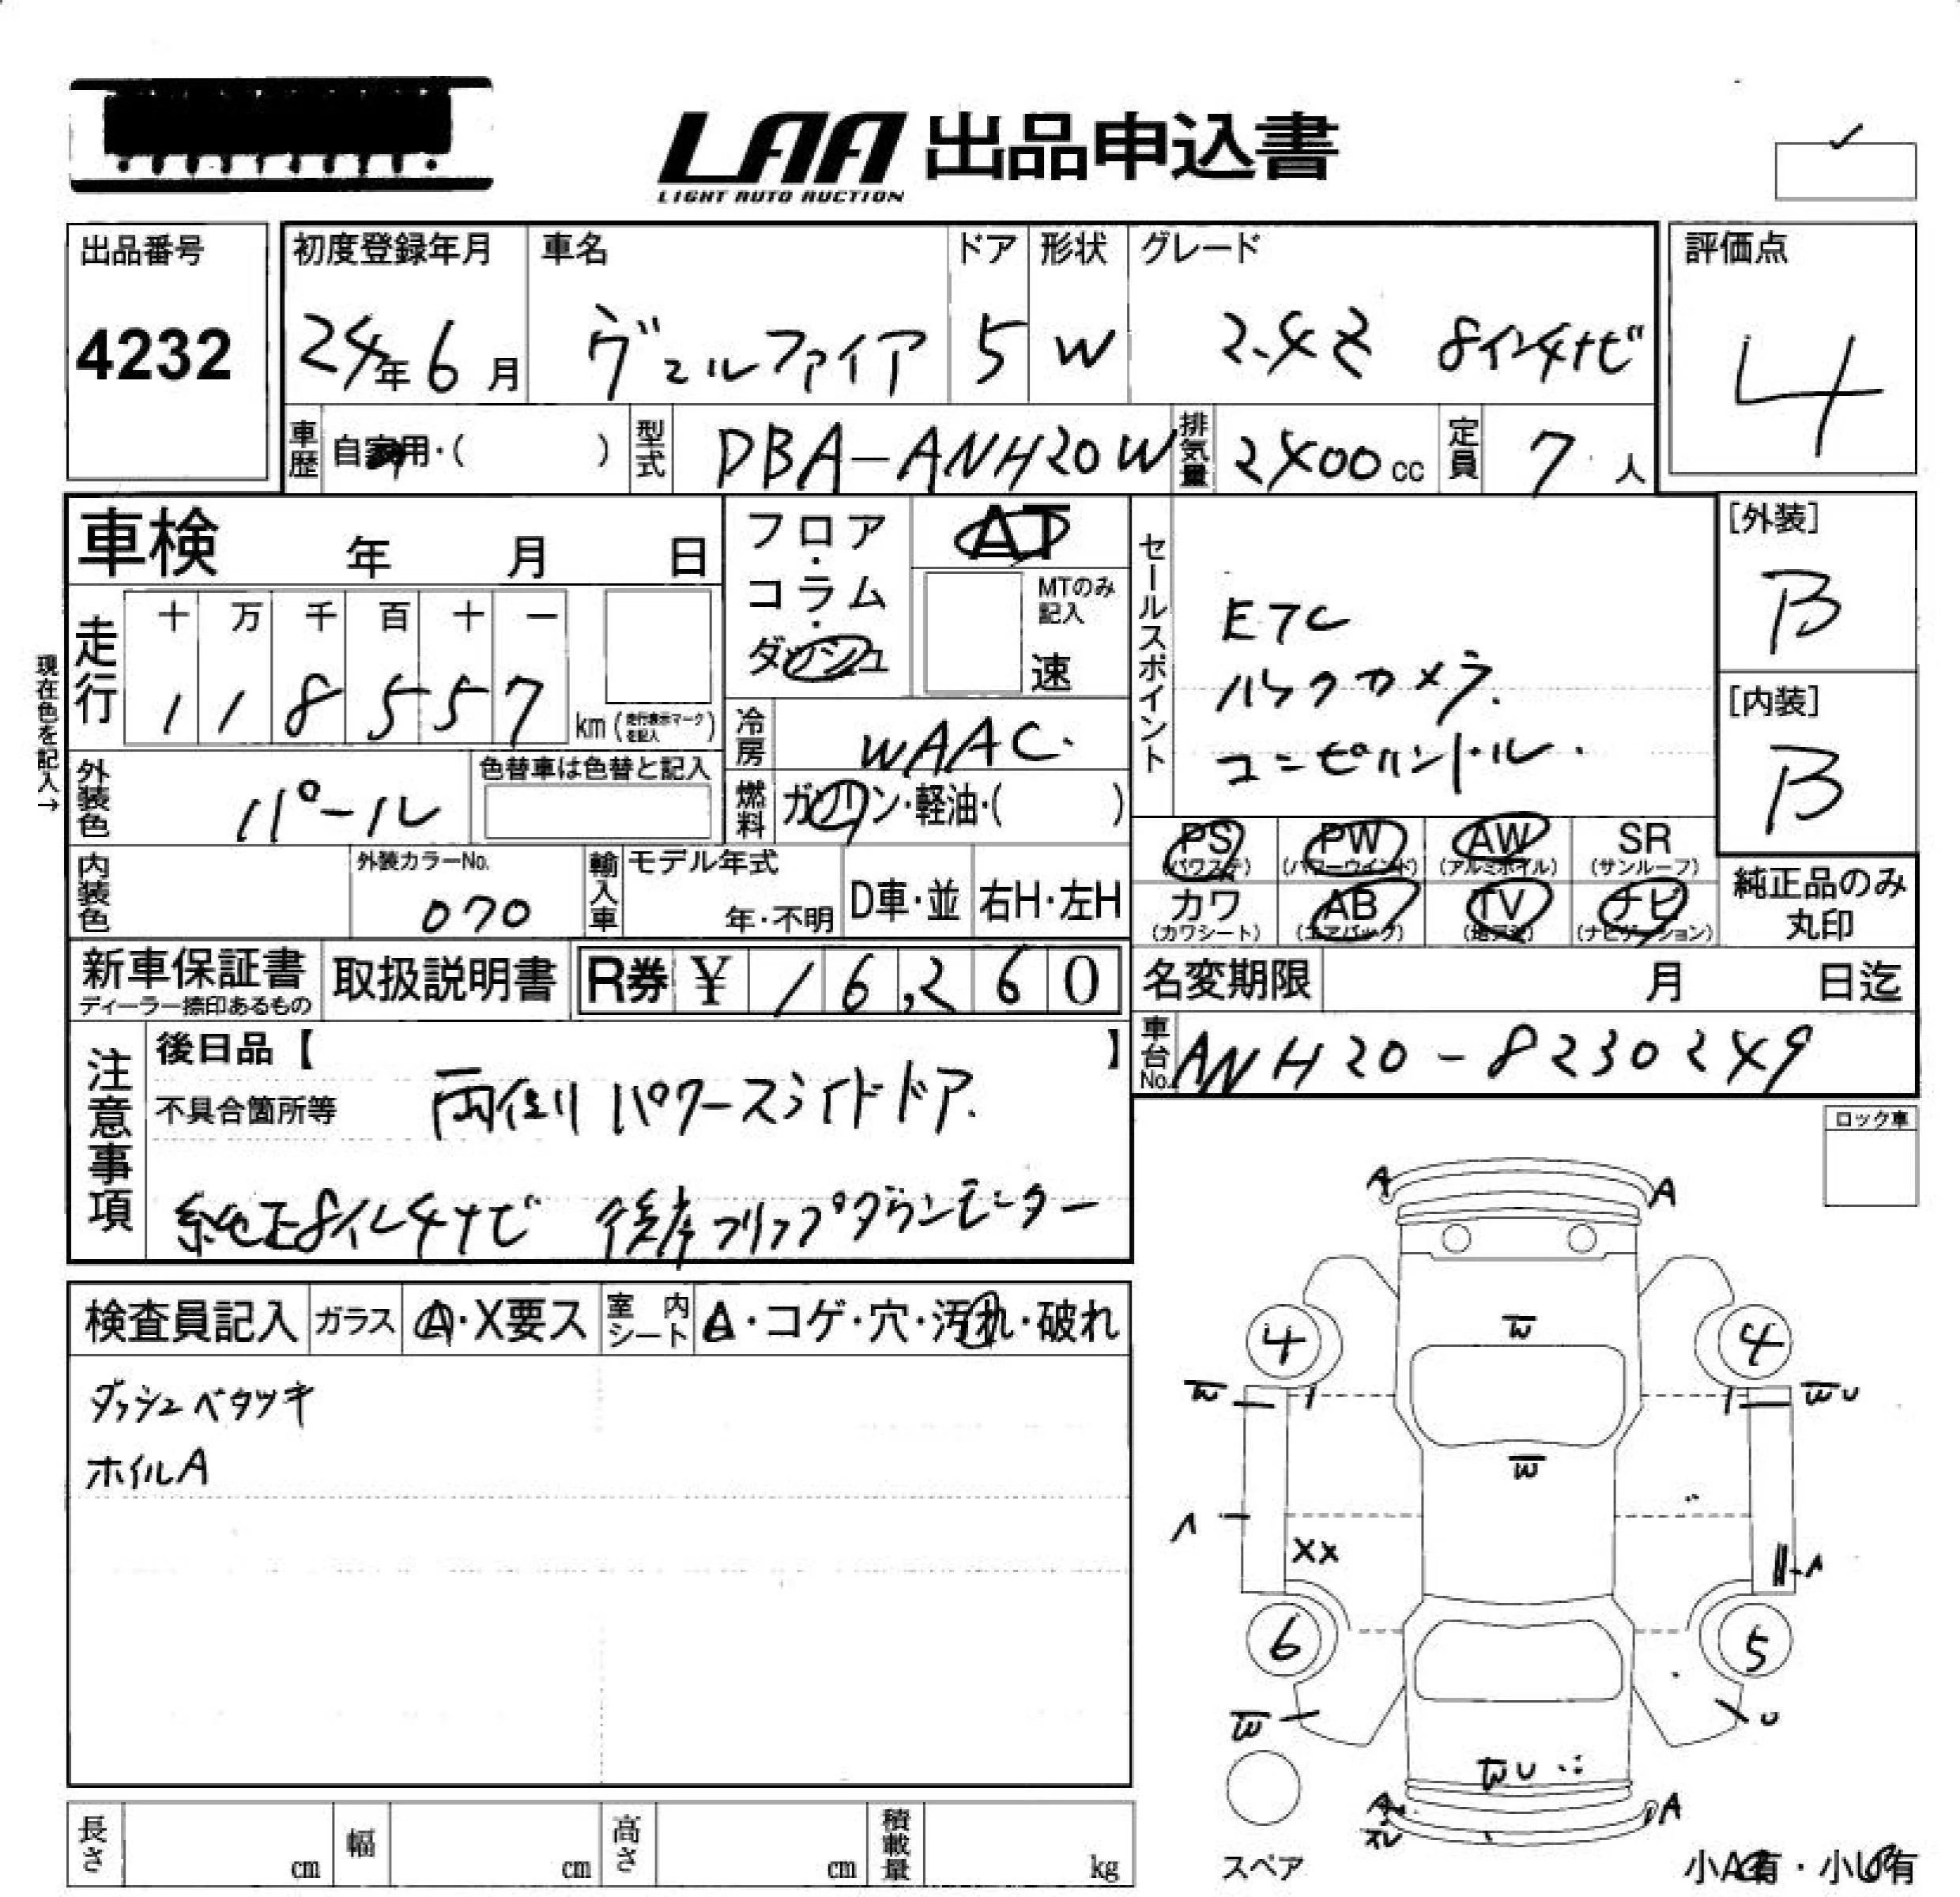 LAA 出品申込書
LIGHT AUTO AUCTION
出品番号
4232
初度登録年月
24年6月
車名
ヴェルファイア
ドア
5
形状
W
グレード
2.4Z 8インチナビ
評価点
4
車歴 自家用・( )
型式 DBA-ANH20W
排気量 2400cc
定員 7人
車検 年 月 日
フロア・コラム・ダッシュ
AT
MTのみ記入
速
セールスポイント
ETC
バックカメラ.
コンビハンドル.
[外装]
B
[内装]
B
現在色を記入→
走行
十 万 千 百 十 一
1 1 8 5 5 7 km (走行表示マークを記入)
冷房 WAAC.
外装色 パール
色替車は色替と記入
燃料 ガソリン・軽油・( )
内装色
外装カラーNo.
070
輸入車
モデル年式
年・不明
D車・並
右H・左H
PS (パワステ)
PW (パワーウインド)
AW (アルミホイル)
SR (サンルーフ)
カワ (カワシート)
AB (エアバック)
TV (地デジ)
ナビ (ナビゲーション)
純正品のみ
丸印
新車保証書
ディーラー捺印あるもの
取扱説明書
R券 ¥ 16,260
名変期限 月 日迄
車台No. ANH20-8230249
注意事項
後日品【 】
不具合箇所等
両側パワースライドドア.
純正8インチナビ 後席フリップダウンモニター
ロック車
検査員記入
ガラス A・X要ス
室内シート A・コゲ・穴・汚れ・破れ
ダッシュベタツキ
ホイルA
A A
4 W 4
W WU
W
A
XX
A
6 5
W U
WU
A A
スレ
スペア
小A有・小U有
長さ cm
幅 cm
高さ cm
積載量 kg